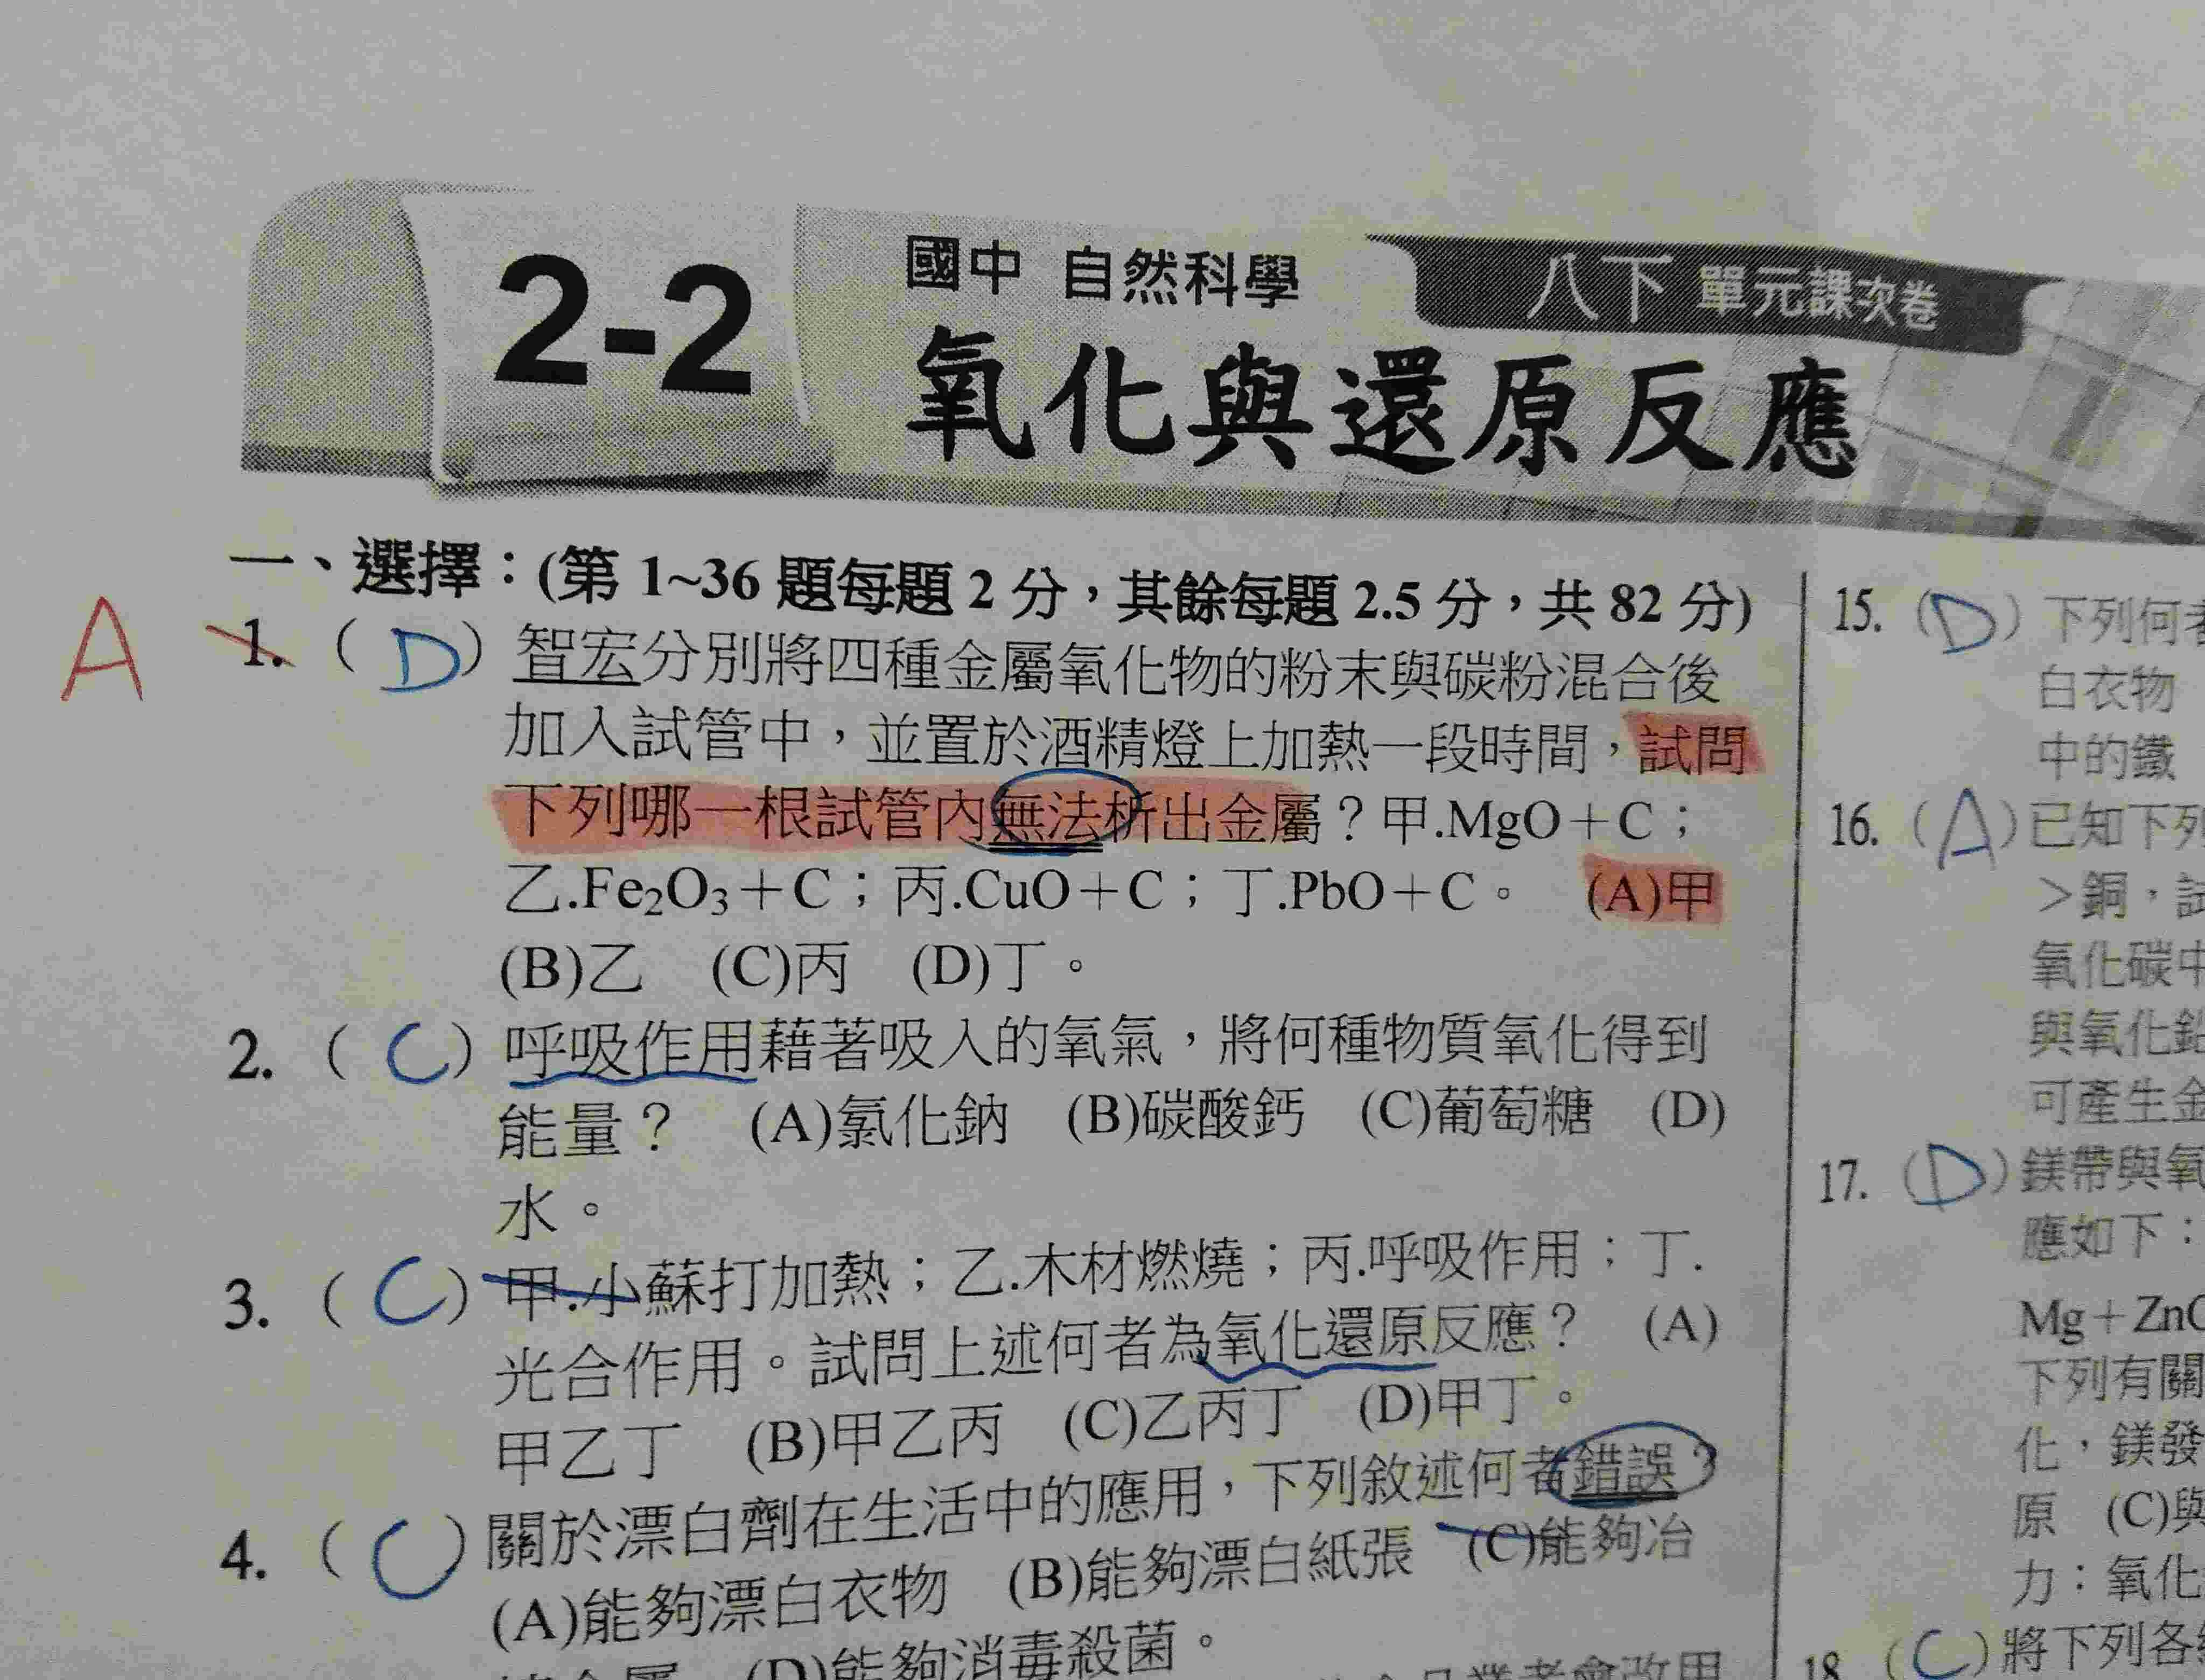 2-2
國中 自然科學
八下 單元課次卷
氧化與還原反應
一、選擇：(第 1~36 題每題 2 分，其餘每題 2.5 分，共 82 分)
A 1. ( D ) 智宏分別將四種金屬氧化物的粉末與碳粉混合後
加入試管中，並置於酒精燈上加熱一段時間，試問
下列哪一根試管內無法析出金屬？甲.MgO＋C；
乙.Fe₂O₃＋C；丙.CuO＋C；丁.PbO＋C。 (A)甲
(B)乙 (C)丙 (D)丁。
2. ( C ) 呼吸作用藉著吸入的氧氣，將何種物質氧化得到
能量？ (A)氯化鈉 (B)碳酸鈣 (C)葡萄糖 (D)
水。
3. ( C ) 甲.小蘇打加熱；乙.木材燃燒；丙.呼吸作用；丁.
光合作用。試問上述何者為氧化還原反應？ (A)
甲乙丁 (B)甲乙丙 (C)乙丙丁 (D)甲丁。
4. ( C ) 關於漂白劑在生活中的應用，下列敘述何者錯誤？
(A)能夠漂白衣物 (B)能夠漂白紙張 (C)能夠冶
(D)能夠消毒殺菌。
15. ( D ) 下列何
白衣物
中的鐵
16. ( A ) 已知下列
＞銅，試
氧化碳中
與氧化鉛
可產生金
17. ( D ) 鎂帶與氧
應如下：
Mg＋Zn
下列有關
化，鎂發
原 (C)與
力：氧化
18. ( C ) 將下列各